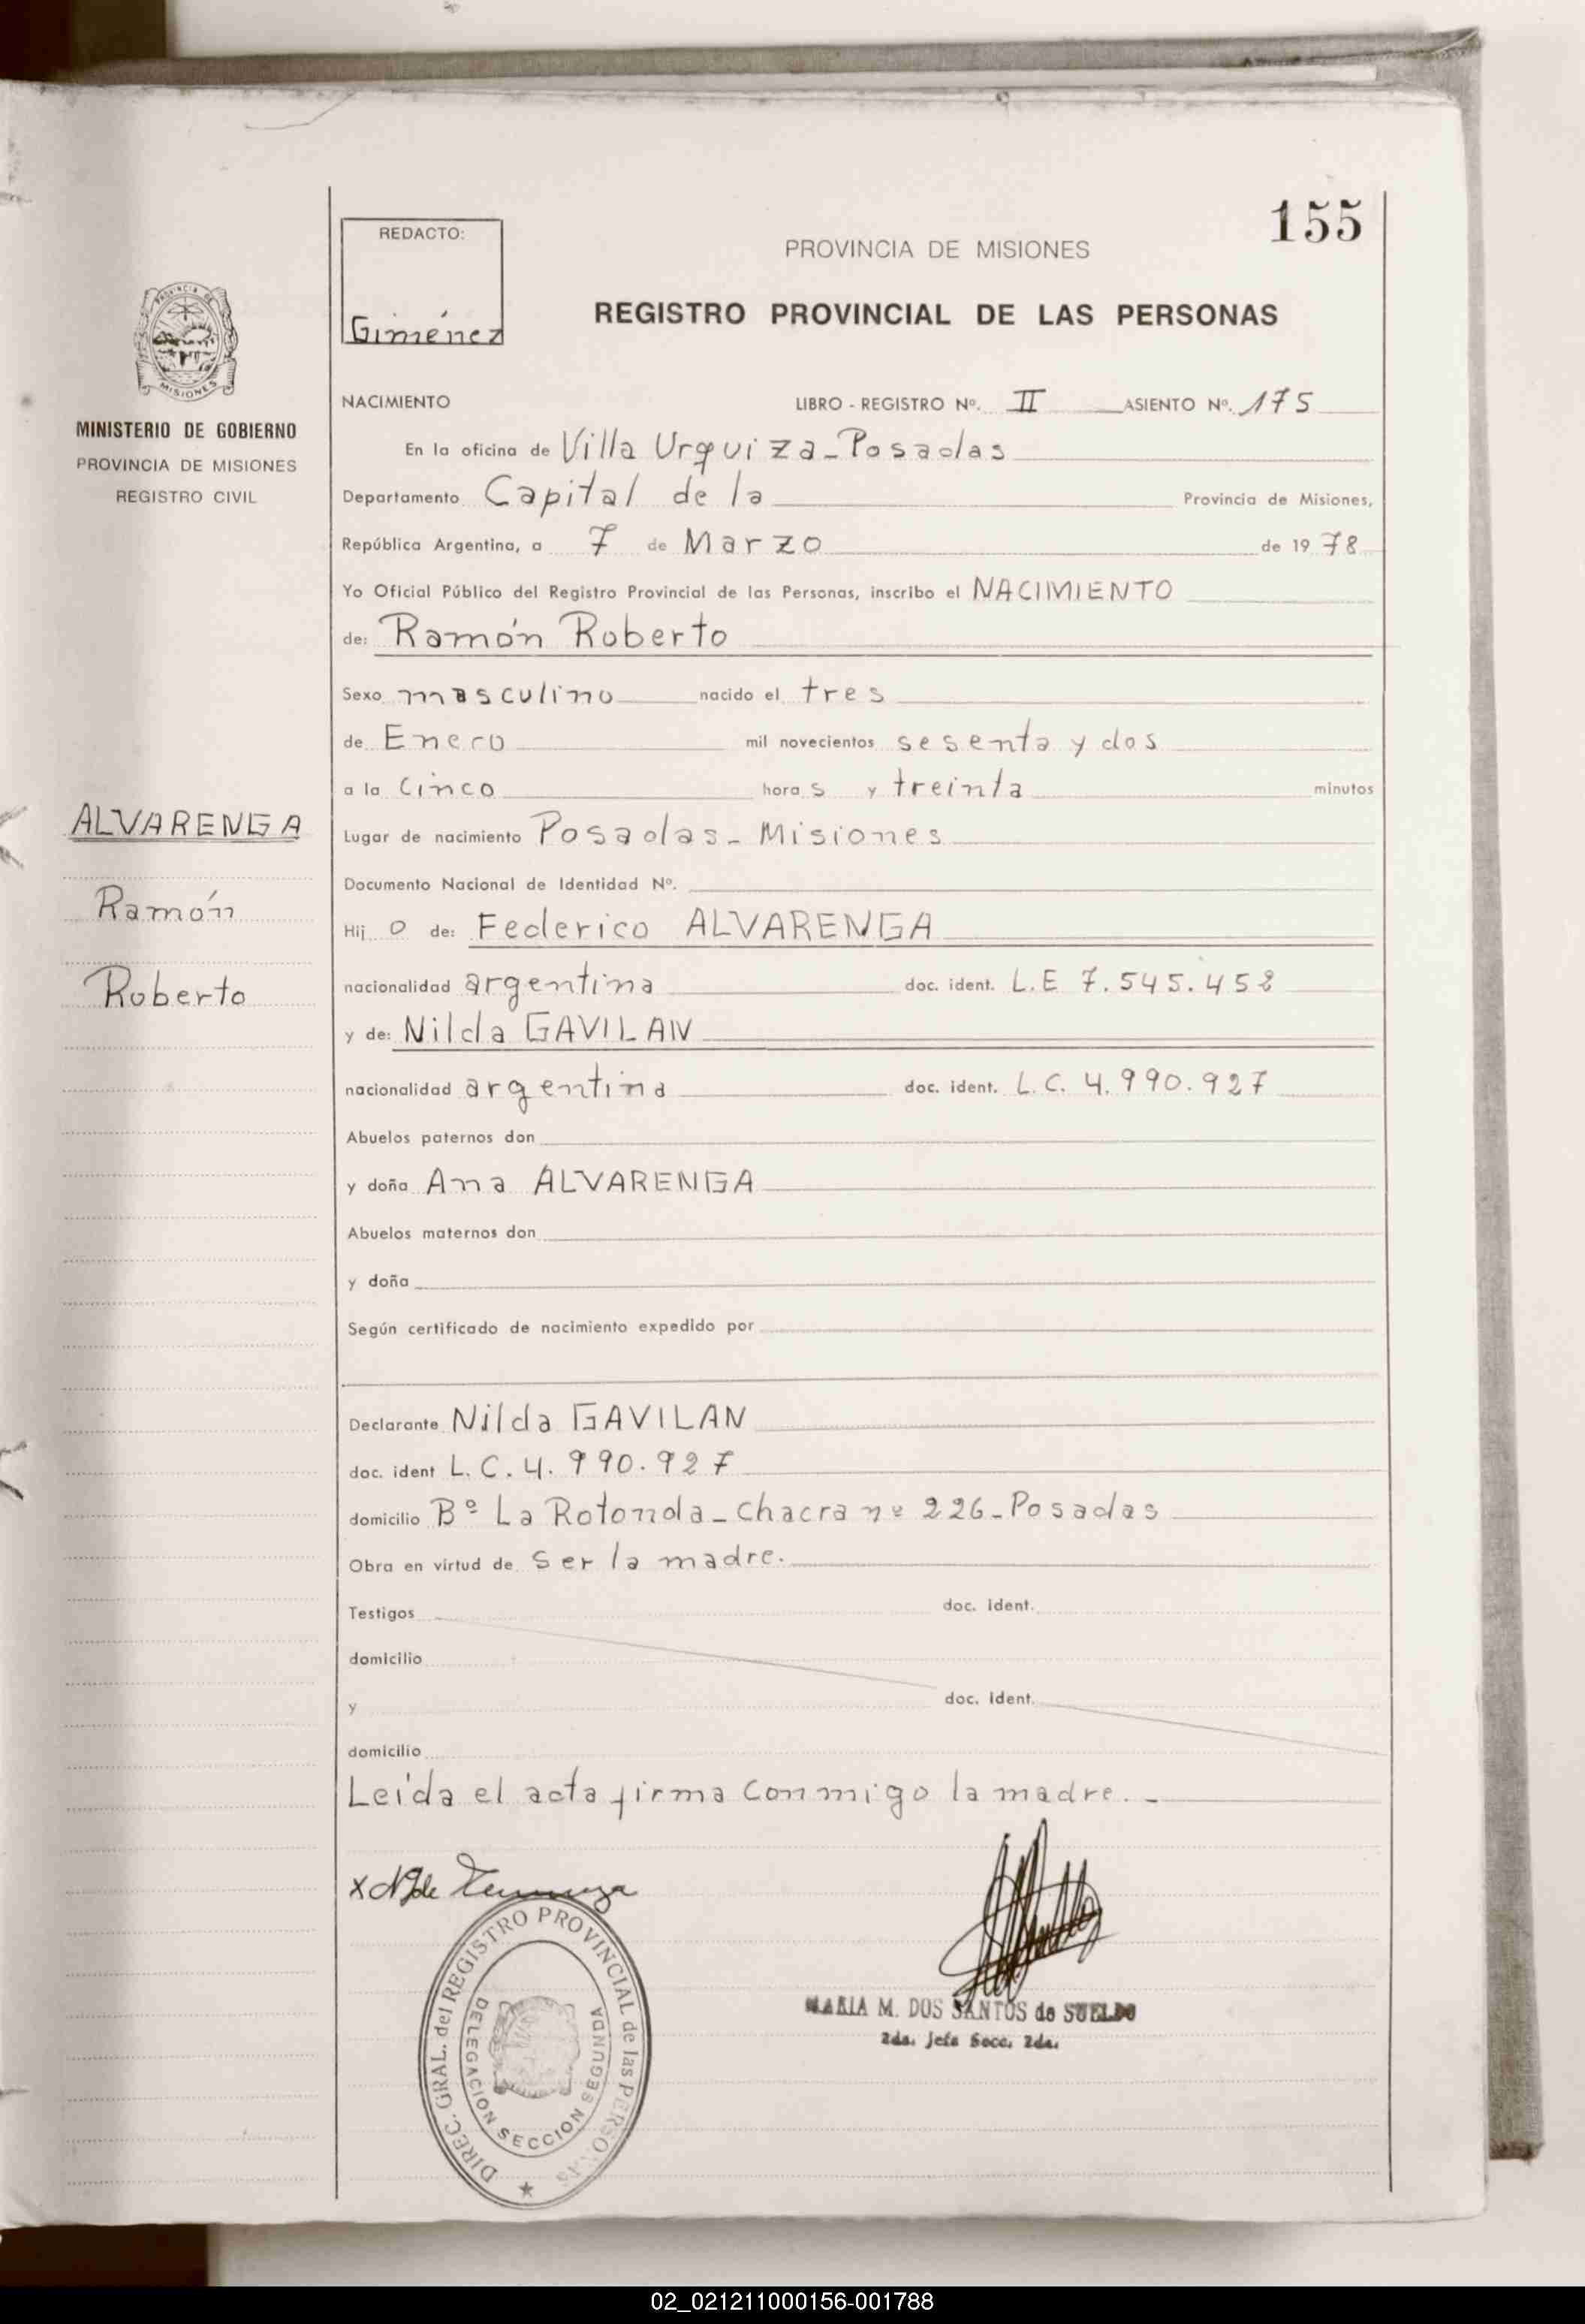 155
REDACTO:
Giménez
PROVINCIA DE MISIONES
REGISTRO PROVINCIAL DE LAS PERSONAS
PROVINCIA DE
MISIONES
MINISTERIO DE GOBIERNO
PROVINCIA DE MISIONES
REGISTRO CIVIL
ALVARENGA
Ramón
Roberto
NACIMIENTO LIBRO - REGISTRO Nº. II ASIENTO Nº. 175
En la oficina de Villa Urquiza - Posadas
Departamento Capital de la Provincia de Misiones,
República Argentina, a 7 de Marzo de 1978
Yo Oficial Público del Registro Provincial de las Personas, inscribo el NACIMIENTO
de: Ramón Roberto
Sexo masculino nacido el tres
de Enero mil novecientos sesenta y dos
a la cinco horas y treinta minutos
Lugar de nacimiento Posadas - Misiones
Documento Nacional de Identidad Nº.
Hijo de: Federico ALVARENGA
nacionalidad argentina doc. ident. L.E 7.545.458
y de: Nilda GAVILAN
nacionalidad argentina doc. ident. L.C. 4.990.927
Abuelos paternos don
y doña Ana ALVARENGA
Abuelos maternos don
y doña
Según certificado de nacimiento expedido por
Declarante Nilda GAVILAN
doc. ident L.C. 4.990.927
domicilio Bº La Rotonda - Chacra nº 226 - Posadas
Obra en virtud de ser la madre.
Testigos doc. ident.
domicilio
y doc. ident.
domicilio
Leída el acta firma conmigo la madre. -
x
DIREC. GRAL. del REGISTRO PROVINCIAL de las PERSONAS
DELEGACION SECCION SEGUNDA
MARIA M. DOS SANTOS de SUELDO
2da. Jefa Secc. 2da.
02_021211000156-001788